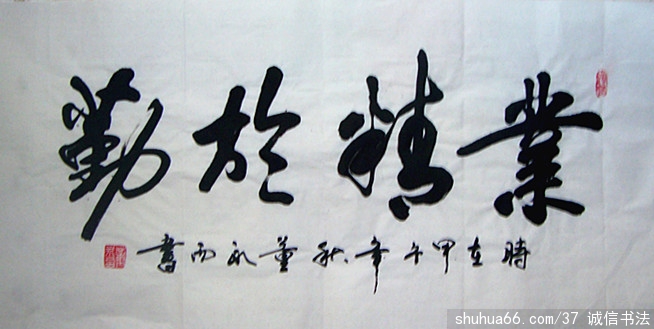 業精於勤
時在甲午年秋董永雨書
shuhua66.com/37 诚信书法